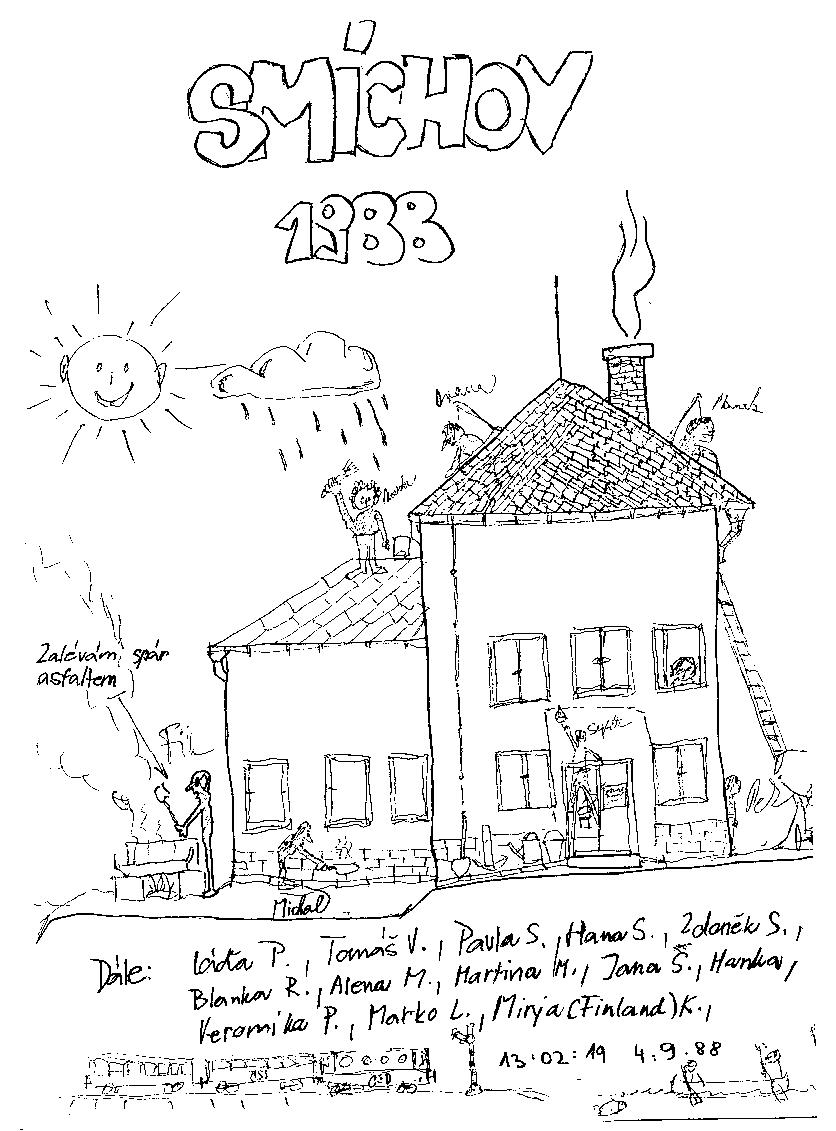 SMÍCHOV
1988
Zalévám spár
asfaltem
Fil
Michal
Dále: Láďa P., Tomáš V., Pavla S., Hana S., Zdeněk S.,
Blanka R., Alena M., Martina M., Jana Š., Hanka,
Veronika P., Marko L., Mirja (Finland) K.,
13:02:19 4.9.88